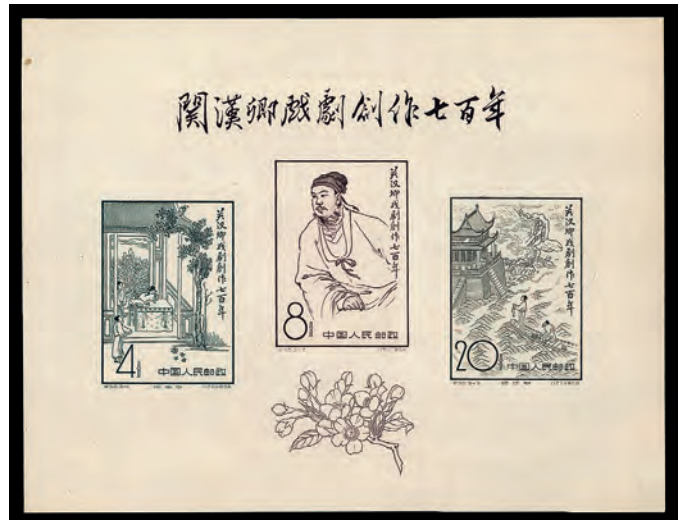 関漢卿戲劇創作七百年
关汉卿戏剧創作七百年
4
中国人民邮政
关汉卿戏剧創作七百年
8
中国人民邮政
关汉卿戏剧創作七百年
20
中国人民邮政